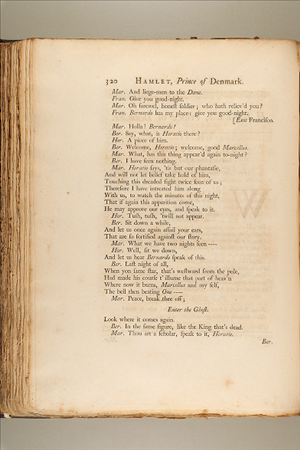 320 HAMLET, Prince of Denmark.
Mar. And liege-men to the Dane.
Fran. Give you good-night.
Mar. Oh farewel, honest soldier; who hath reliev'd you?
Fran. Bernardo has my place: give you good-night.
[Exit Francisco.
Mar. Holla! Bernardo!
Ber. Say, what, is Horatio there?
Hor. A piece of him.
Ber. Welcome, Horatio; welcome, good Marcellus.
Mar. What, has this thing appear'd again to-night?
Ber. I have seen nothing.
Mar. Horatio says, 'tis but our phantasie,
And will not let belief take hold of him,
Touching this dreaded sight twice seen of us;
Therefore I have intreated him along
With us, to watch the minutes of this night,
That if again this apparition come,
He may approve our eyes, and speak to it.
Hor. Tush, tush, 'twill not appear.
Ber. Sit down a while,
And let us once again assail your ears,
That are so fortified against our story,
Mar. What we have two nights seen ----
Hor. Well, sit we down,
And let us hear Bernardo speak of this.
Ber. Last night of all,
When yon same star, that's westward from the pole,
Had made his course t' illume that part of heav'n
Where now it burns, Marcellus and my self,
The bell then beating One ----
Mar. Peace, break thee off;
Enter the Ghost.
Look where it comes again.
Ber. In the same figure, like the King that's dead.
Mar. Thou art a scholar, speak to it, Horatio.
Ber.